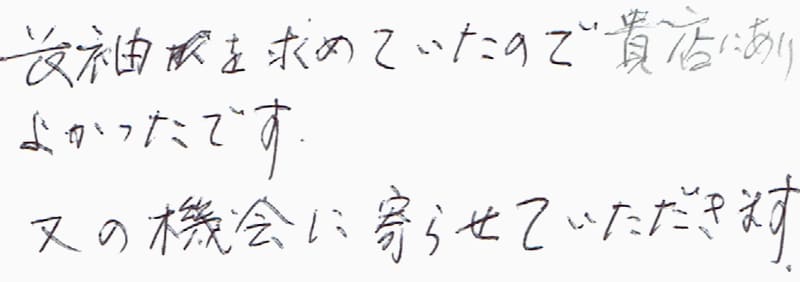 長袖を求めていたので貴店にあり
よかったです.
又の機会に寄らせていただきます.